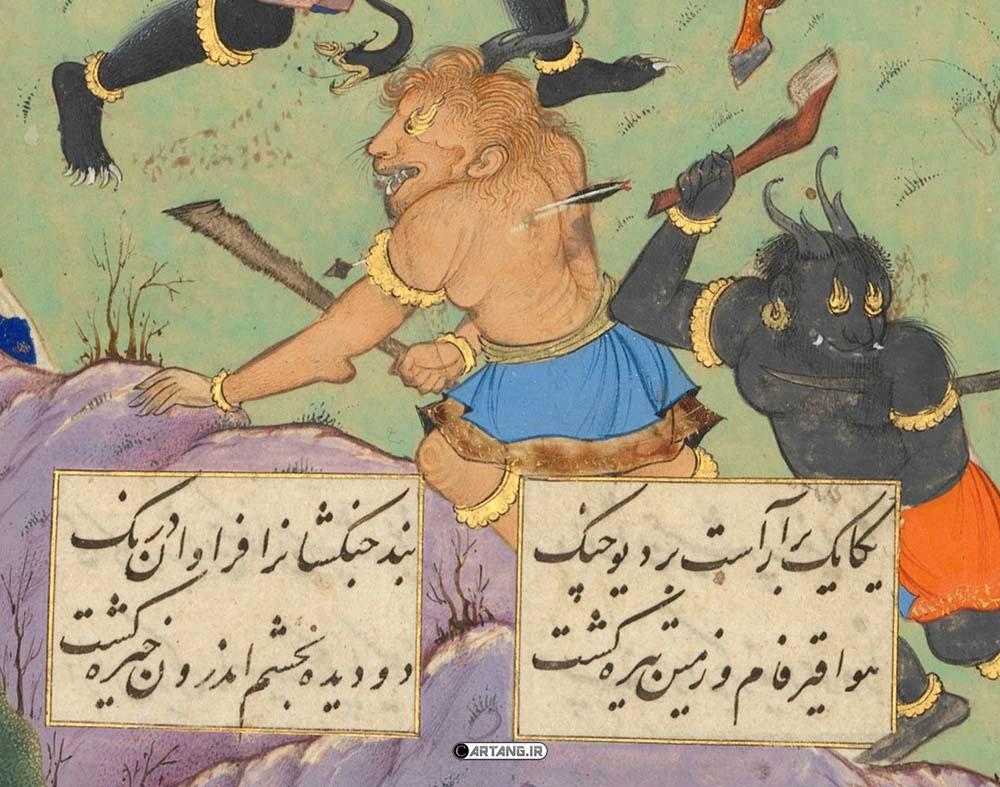 یکایک برآراست بر دیو جنگ
نبد جنگشانرا فراوان درنگ
هوا قیرفام و زمین تیره گشت
دو دیده بچشم اندرون خیره گشت
CARTANG.IR